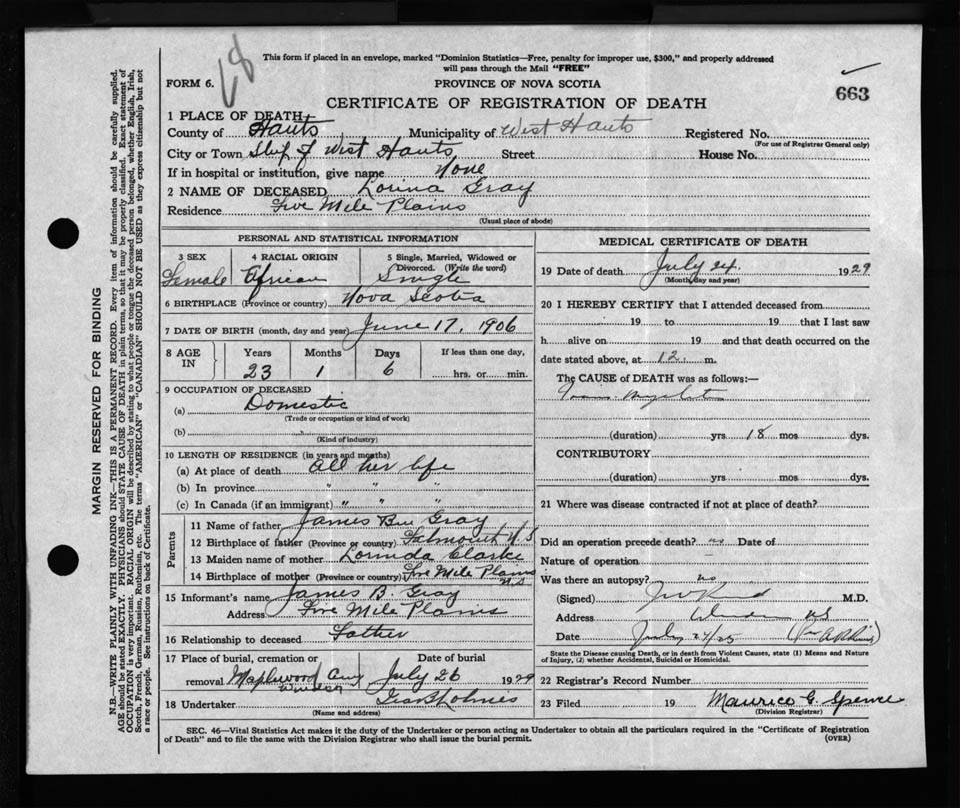 This form if placed in an envelope, marked "Dominion Statistics—Free, penalty for improper use, $300," and properly addressed
will pass through the Mail "FREE"
68
FORM 6.
PROVINCE OF NOVA SCOTIA
663
CERTIFICATE OF REGISTRATION OF DEATH
1 PLACE OF DEATH
County of Hants Municipality of West Hants Registered No.
(For use of Registrar General only)
City or Town of West Hants Street House No.
If in hospital or institution, give name None
2 NAME OF DECEASED Lorina Gray
Residence Five Mile Plains
(Usual place of abode)
PERSONAL AND STATISTICAL INFORMATION
3 SEX 4 RACIAL ORIGIN 5 Single, Married, Widowed or
Divorced. (Write the word)
Female African Single
6 BIRTHPLACE (Province or country) Nova Scotia
7 DATE OF BIRTH (month, day and year) June 17, 1906
8 AGE IN Years Months Days If less than one day,
23 1 6 hrs. or min.
9 OCCUPATION OF DECEASED
(a) Domestic
(Trade or occupation or kind of work)
(b)
(Kind of industry)
10 LENGTH OF RESIDENCE (in years and months)
(a) At place of death all her life
(b) In province " " "
(c) In Canada (if an immigrant) " " "
Parents
11 Name of father James Gray
12 Birthplace of father (Province or country) Falmouth N S
13 Maiden name of mother Lorinda Clarke
14 Birthplace of mother (Province or country) Five Mile Plains
N.S
15 Informant's name James B. Gray
Address Five Mile Plains
16 Relationship to deceased Father
17 Place of burial, cremation or Date of burial
removal Maplewood Cem July 26 1929
Windsor
18 Undertaker
(Name and address)
MEDICAL CERTIFICATE OF DEATH
19 Date of death July 24 1929
(Month, day and year)
20 I HEREBY CERTIFY that I attended deceased from
19 to 19 that I last saw
h alive on 19 and that death occurred on the
date stated above, at 12 m.
The CAUSE OF DEATH was as follows:—
(duration) yrs 18 mos dys.
CONTRIBUTORY
(duration) yrs mos dys.
21 Where was disease contracted if not at place of death?
Did an operation precede death? no Date of
Nature of operation
Was there an autopsy? no
(Signed) M.D.
Address NS
Date July
State the Disease causing Death, or in death from Violent Causes, state (1) Means and Nature
of Injury, (2) whether Accidental, Suicidal or Homicidal.
22 Registrar's Record Number
23 Filed 19 Maurice G. Spence
(Division Registrar)
SEC. 46—Vital Statistics Act makes it the duty of the Undertaker or person acting as Undertaker to obtain all the particulars required in the "Certificate of Registration
of Death" and to file the same with the Division Registrar who shall issue the burial permit.
(OVER)
MARGIN RESERVED FOR BINDING
N.B.—WRITE PLAINLY WITH UNFADING INK—THIS IS A PERMANENT RECORD. Every item of information should be carefully supplied.
AGE should be stated EXACTLY. PHYSICIANS should STATE CAUSE OF DEATH in plain terms, so that it may be properly classified. Exact statement of
OCCUPATION is very important. RACIAL ORIGIN will be described by stating to what people or tongue the deceased person belonged, whether English, Irish,
Scotch, French, German, Russian, Ruthenian, etc. The terms "AMERICAN" or "CANADIAN" SHOULD NOT BE USED as they express citizenship but not
a race or people. See instructions on back of Certificate.